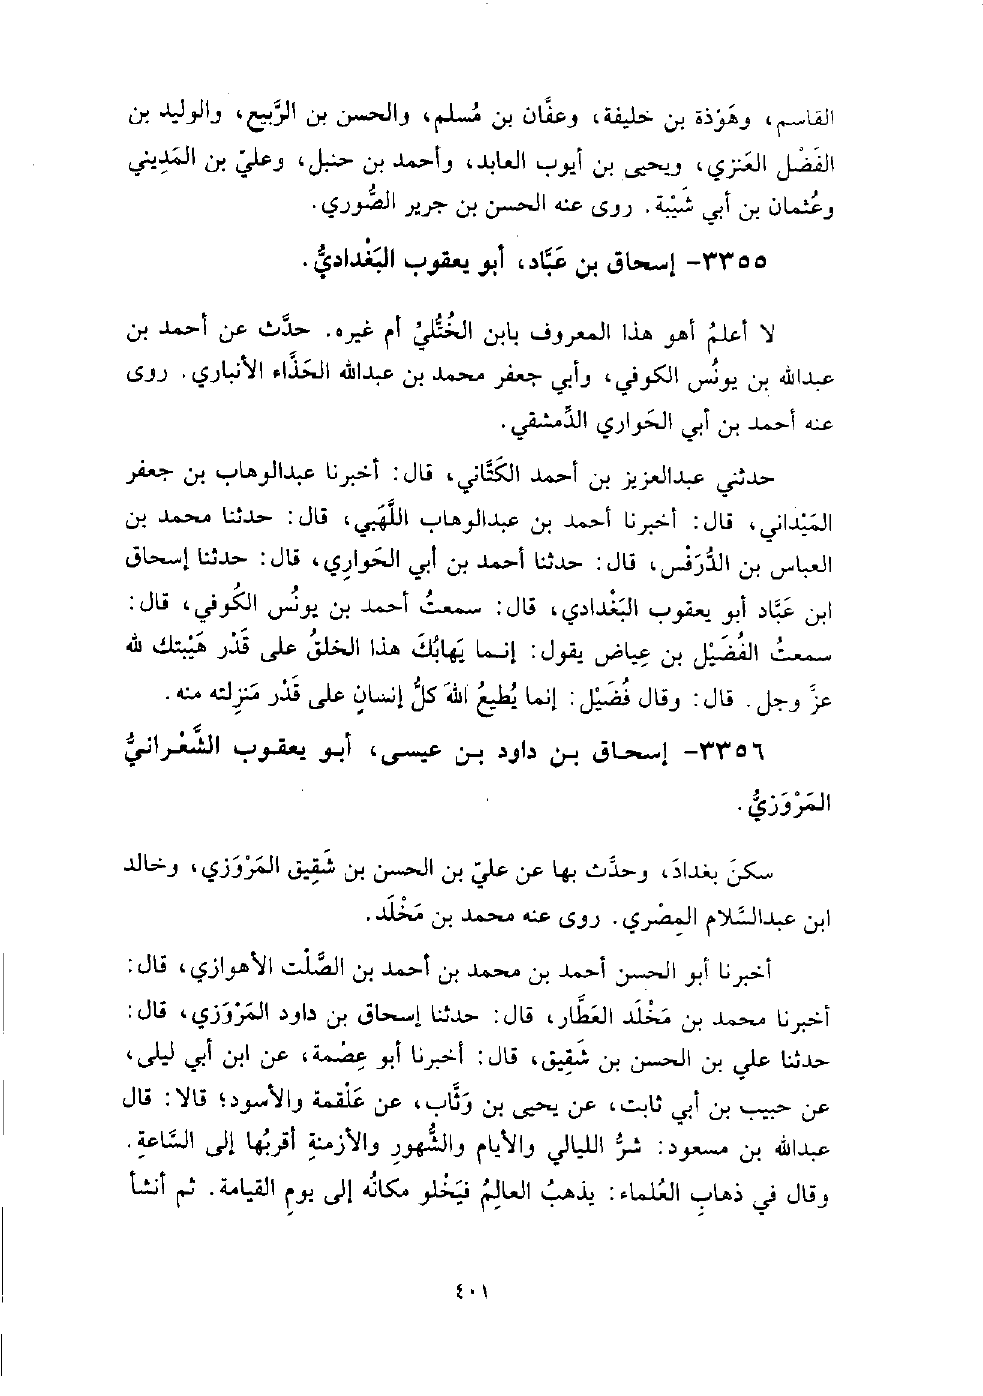 القاسم، وهَوْذة بن خليفة، وعفَّان بن مُسلم، والحسن بن الرَّبيع، والوليد بن
الفَضْل العَنزي، ويحيى بن أيوب العابد، وأحمد بن حنبل، وعليّ بن المَديني
وعُثمان بن أبي شَيْبة. روى عنه الحسن بن جرير الصُّوري.
٣٣٥٥- إسحاق بن عَبَّاد، أبو يعقوب البَغْداديُّ.
لا أعلمُ أهو هذا المعروف بابن الخُتُّليْ أم غيره. حدَّث عن أحمد بن
عبدالله بن يونُس الكوفي، وأبي جعفر محمد بن عبدالله الحَذَّاء الأنباري. روى
عنه أحمد بن أبي الحَواري الدِّمشقي.
حدثني عبدالعزيز بن أحمد الكَتَّاني، قال: أخبرنا عبدالوهاب بن جعفر
المَيْداني، قال: أخبرنا أحمد بن عبدالوهاب اللَّهَبي، قال: حدثنا محمد بن
العباس بن الدُّرَفْس، قال: حدثنا أحمد بن أبي الحَوارِي، قال: حدثنا إسحاق
ابن عَبَّاد أبو يعقوب البَغْدادي، قال: سمعتُ أحمد بن يونُس الكُوفي، قال:
سمعتُ الفُضَيْل بن عِياض يقول: إنما يَهابُكَ هذا الخلقُ على قَدْر هَيْبتك لله
عزَّ وجل. قال: وقال فُضَيْل: إنما يُطيعُ اللهَ كلُّ إنسانٍ على قَدْر مَنزلته منه.
٣٣٥٦- إسحاق بن داود بن عيسى، أبو يعقوب الشَّعْرانيُّ
المَرْوَزيُّ.
سكنَ بغدادَ، وحدَّث بها عن عليّ بن الحسن بن شَقِيق المَرْوَزي، وخالد
ابن عبدالسَّلام المِصْري. روى عنه محمد بن مَخْلَد.
أخبرنا أبو الحسن أحمد بن محمد بن أحمد بن الصَّلْت الأهوازي، قال:
أخبرنا محمد بن مَخْلَد العَطَّار، قال: حدثنا إسحاق بن داود المَرْوَزي، قال:
حدثنا علي بن الحسن بن شَقِيق، قال: أخبرنا أبو عِصْمة، عن ابن أبي ليلى،
عن حبيب بن أبي ثابت، عن يحيى بن وَثَّاب، عن عَلْقمة والأسود؛ قالا: قال
عبدالله بن مسعود: شرُّ الليالي والأيام والشُّهورِ والأزمنةِ أقربُها إلى السَّاعةِ.
وقال في ذهابِ العُلماء: يذهبُ العالِمُ فيَخْلو مكانُه إلى يومِ القيامة. ثم أنشأ
٤٠١